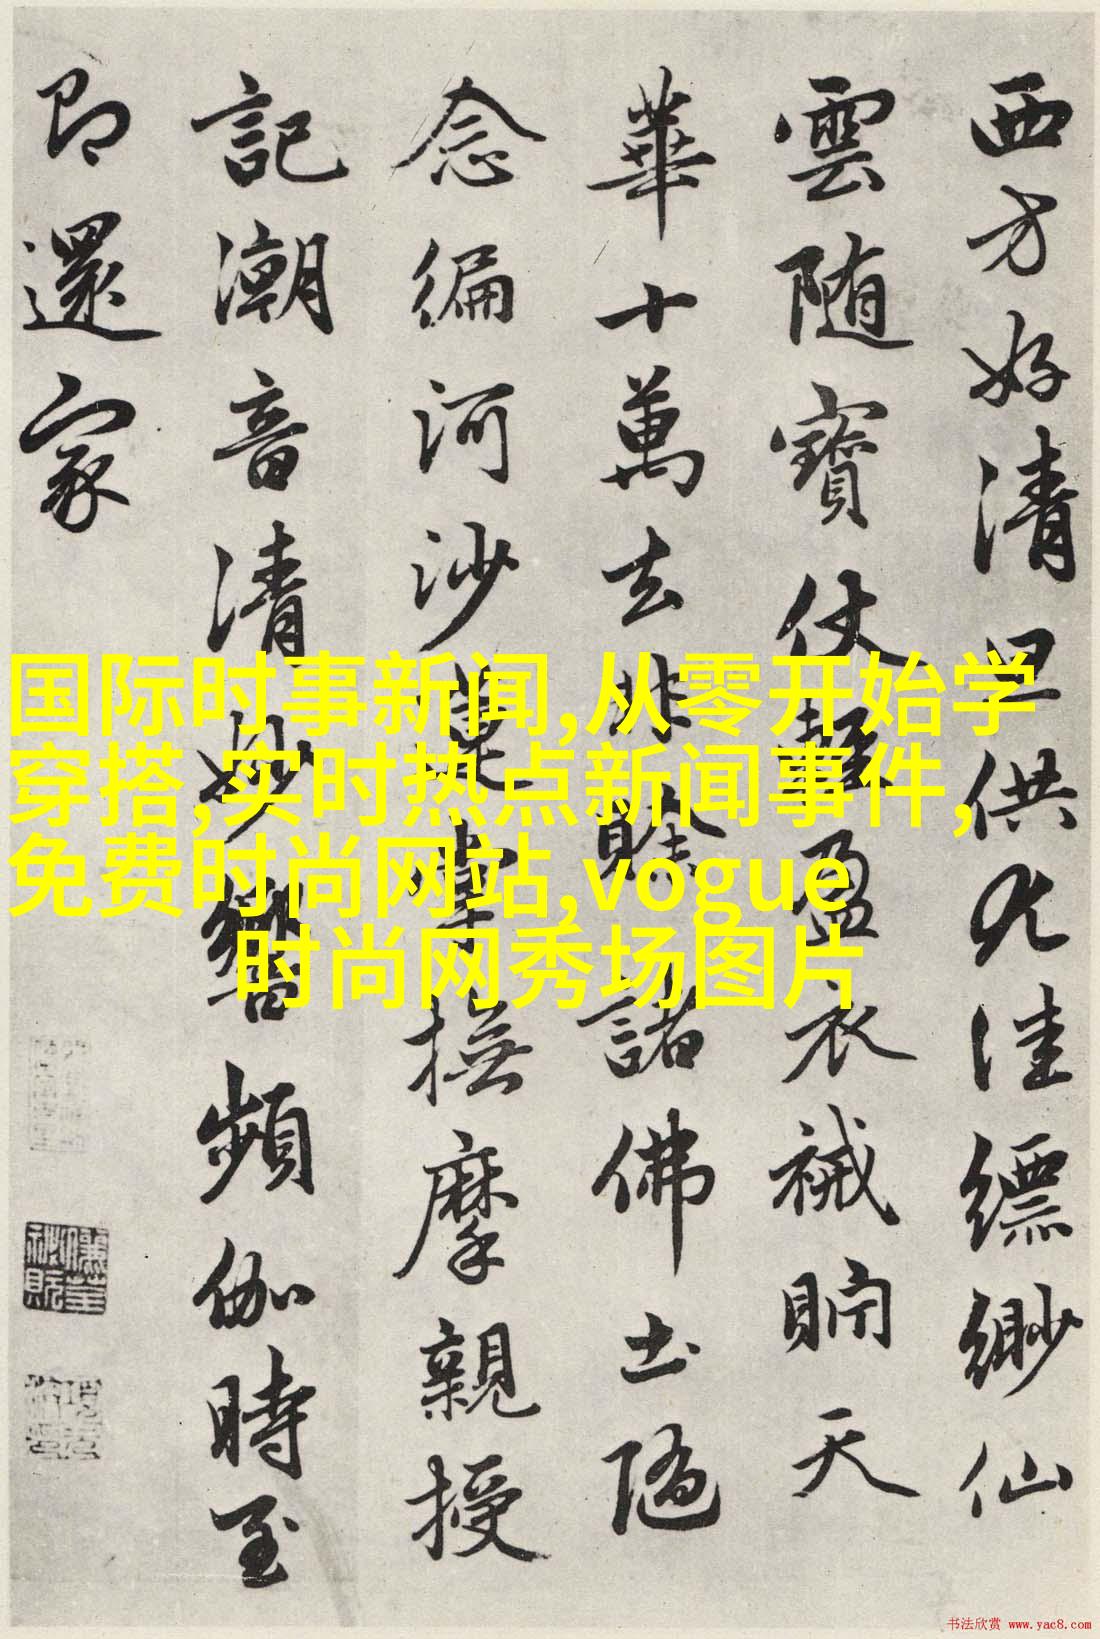 西方好清旦供尤佳縹缈仙
雲随寶仗聲盈衣裓貯天
華十萬去非賖諸佛土隨
念編河沙蓮掌撫摩親授
記潮音清妙響頻伽時至
即還家
国际时事新闻,从零开始学
穿搭,实时热点新闻事件,
免费时尚网站,vogue
时尚网秀场图片
书法欣赏 www.yac8.com